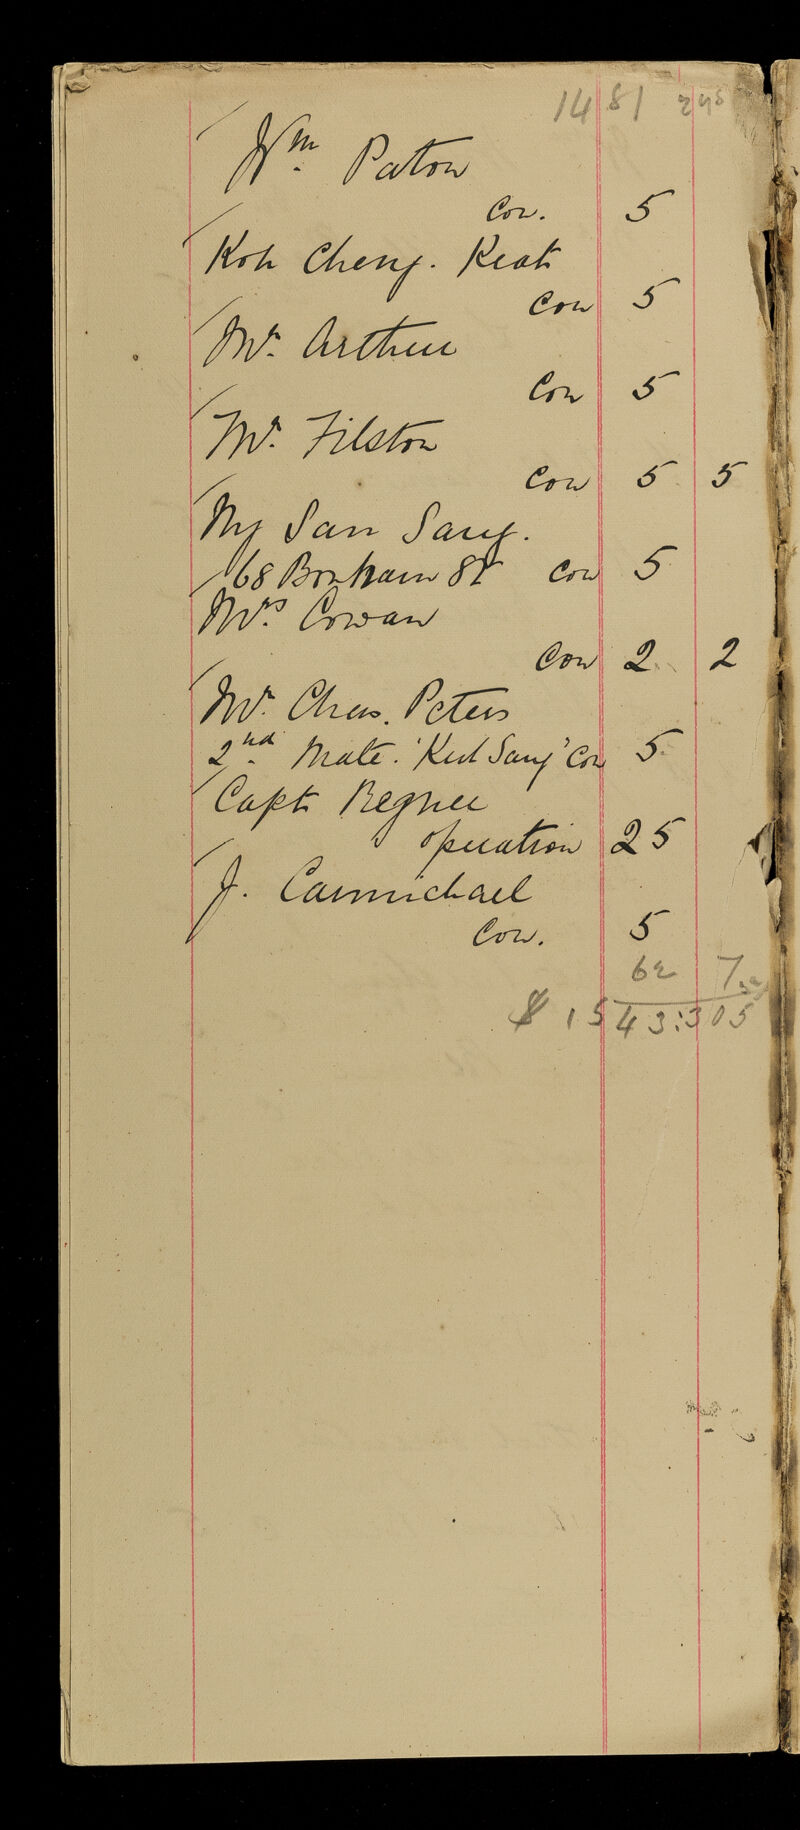 1481 298
Wm. Paton
Con. 5
Koh Cheng. Keat
Con 5
Mr. Arthur
Con 5
Mr. Filston
Con 5 5
Ng San Sang.
68 Bonham St Con 5
Mrs. Cowan
Con 2 2
Mr. Chas. Peters
2nd Mate. 'Kut Sang' Con 5
Capt.
operation 25
J. Carmichael
Con. 5
62 7
$ 1543:305